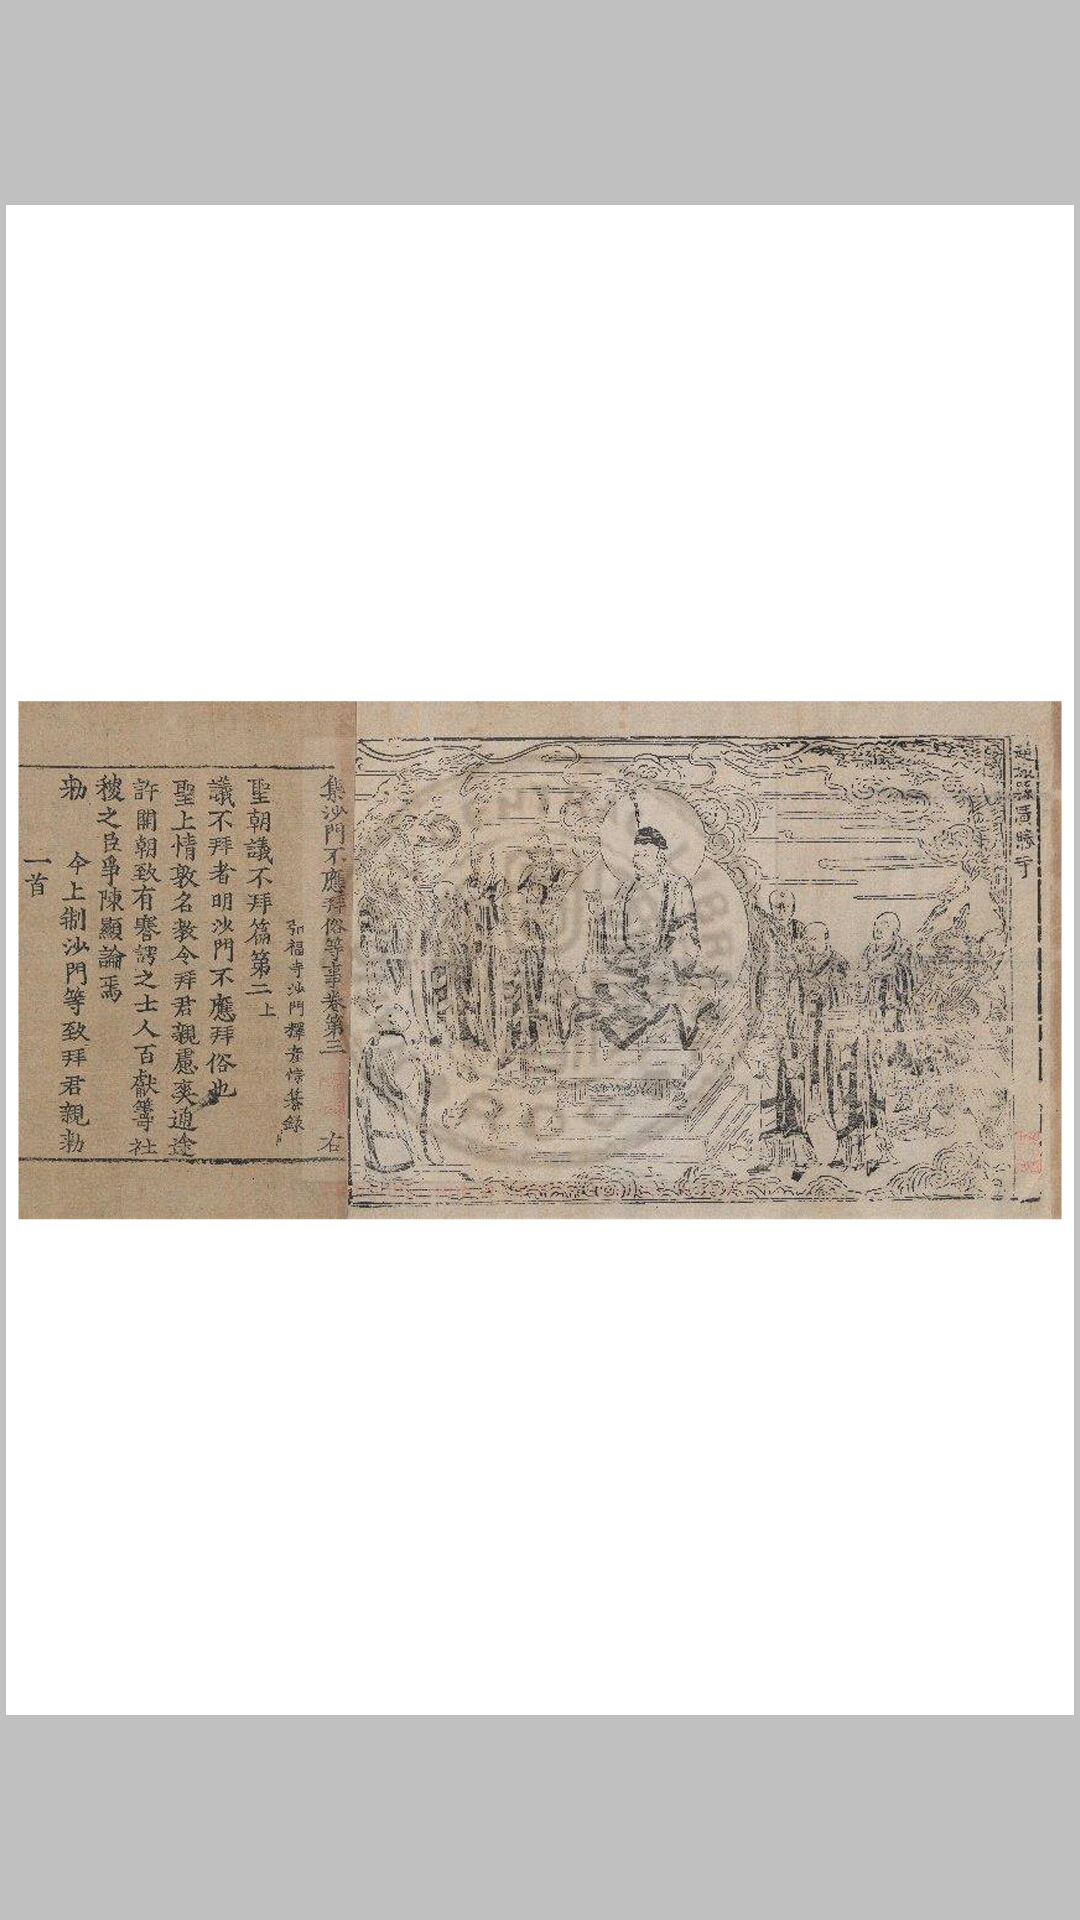 集沙門不應拜俗等事卷第三 右
弘福寺沙門釋彥悰纂錄
聖朝議不拜篇第二上
議不拜者明沙門不應拜俗也
聖上情敦名教令拜君親慮爽通途
許開朝致有謇諤之士人百獻籌社
稷之臣爭陳顯論焉
勑 今上制沙門等致拜君親勑
一首